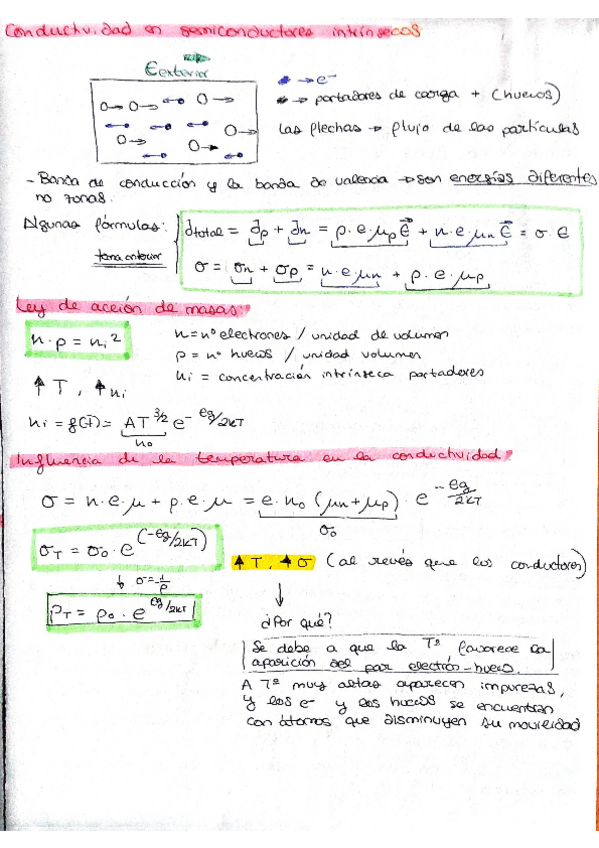 Conductividad en semiconductores intrínsecos
E exterior
→ e⁻
→ portadores de carga + (huecos)
Las flechas → flujo de las partículas
- Banda de conducción y la banda de valencia → son energías diferentes
no zonas.
Algunas fórmulas:
tema anterior
J total = Jp + Jn = p·e·μp E + n·e·μn E = σ·E
σ = σn + σp = n·e·μn + p·e·μp
Ley de acción de masas:
n·p = ni²
n = nº electrones / unidad de volumen
p = nº huecos / unidad volumen
ni = concentración intrínseca portadores
↑ T, ↑ ni
ni = f(T) = AT^3/2 e^-eg/2kT
no
Influencia de la temperatura en la conductividad:
σ = n·e·μ + p·e·μ = e·no (μn+μp) · e^-eg/2kT
σo
σT = σo · e^(-eg/2kT)
↑ T, ↑ σ (al revés que los conductores)
↓ σ = 1/ρ
ρT = ρo · e^eg/2kT
↓
¿Por qué?
Se debe a que la Tª favorece la
aparición del par electrón-hueco.
A Tª muy altas aparecen impurezas,
y los e⁻ y los huecos se encuentran
con átomos que disminuyen su movilidad